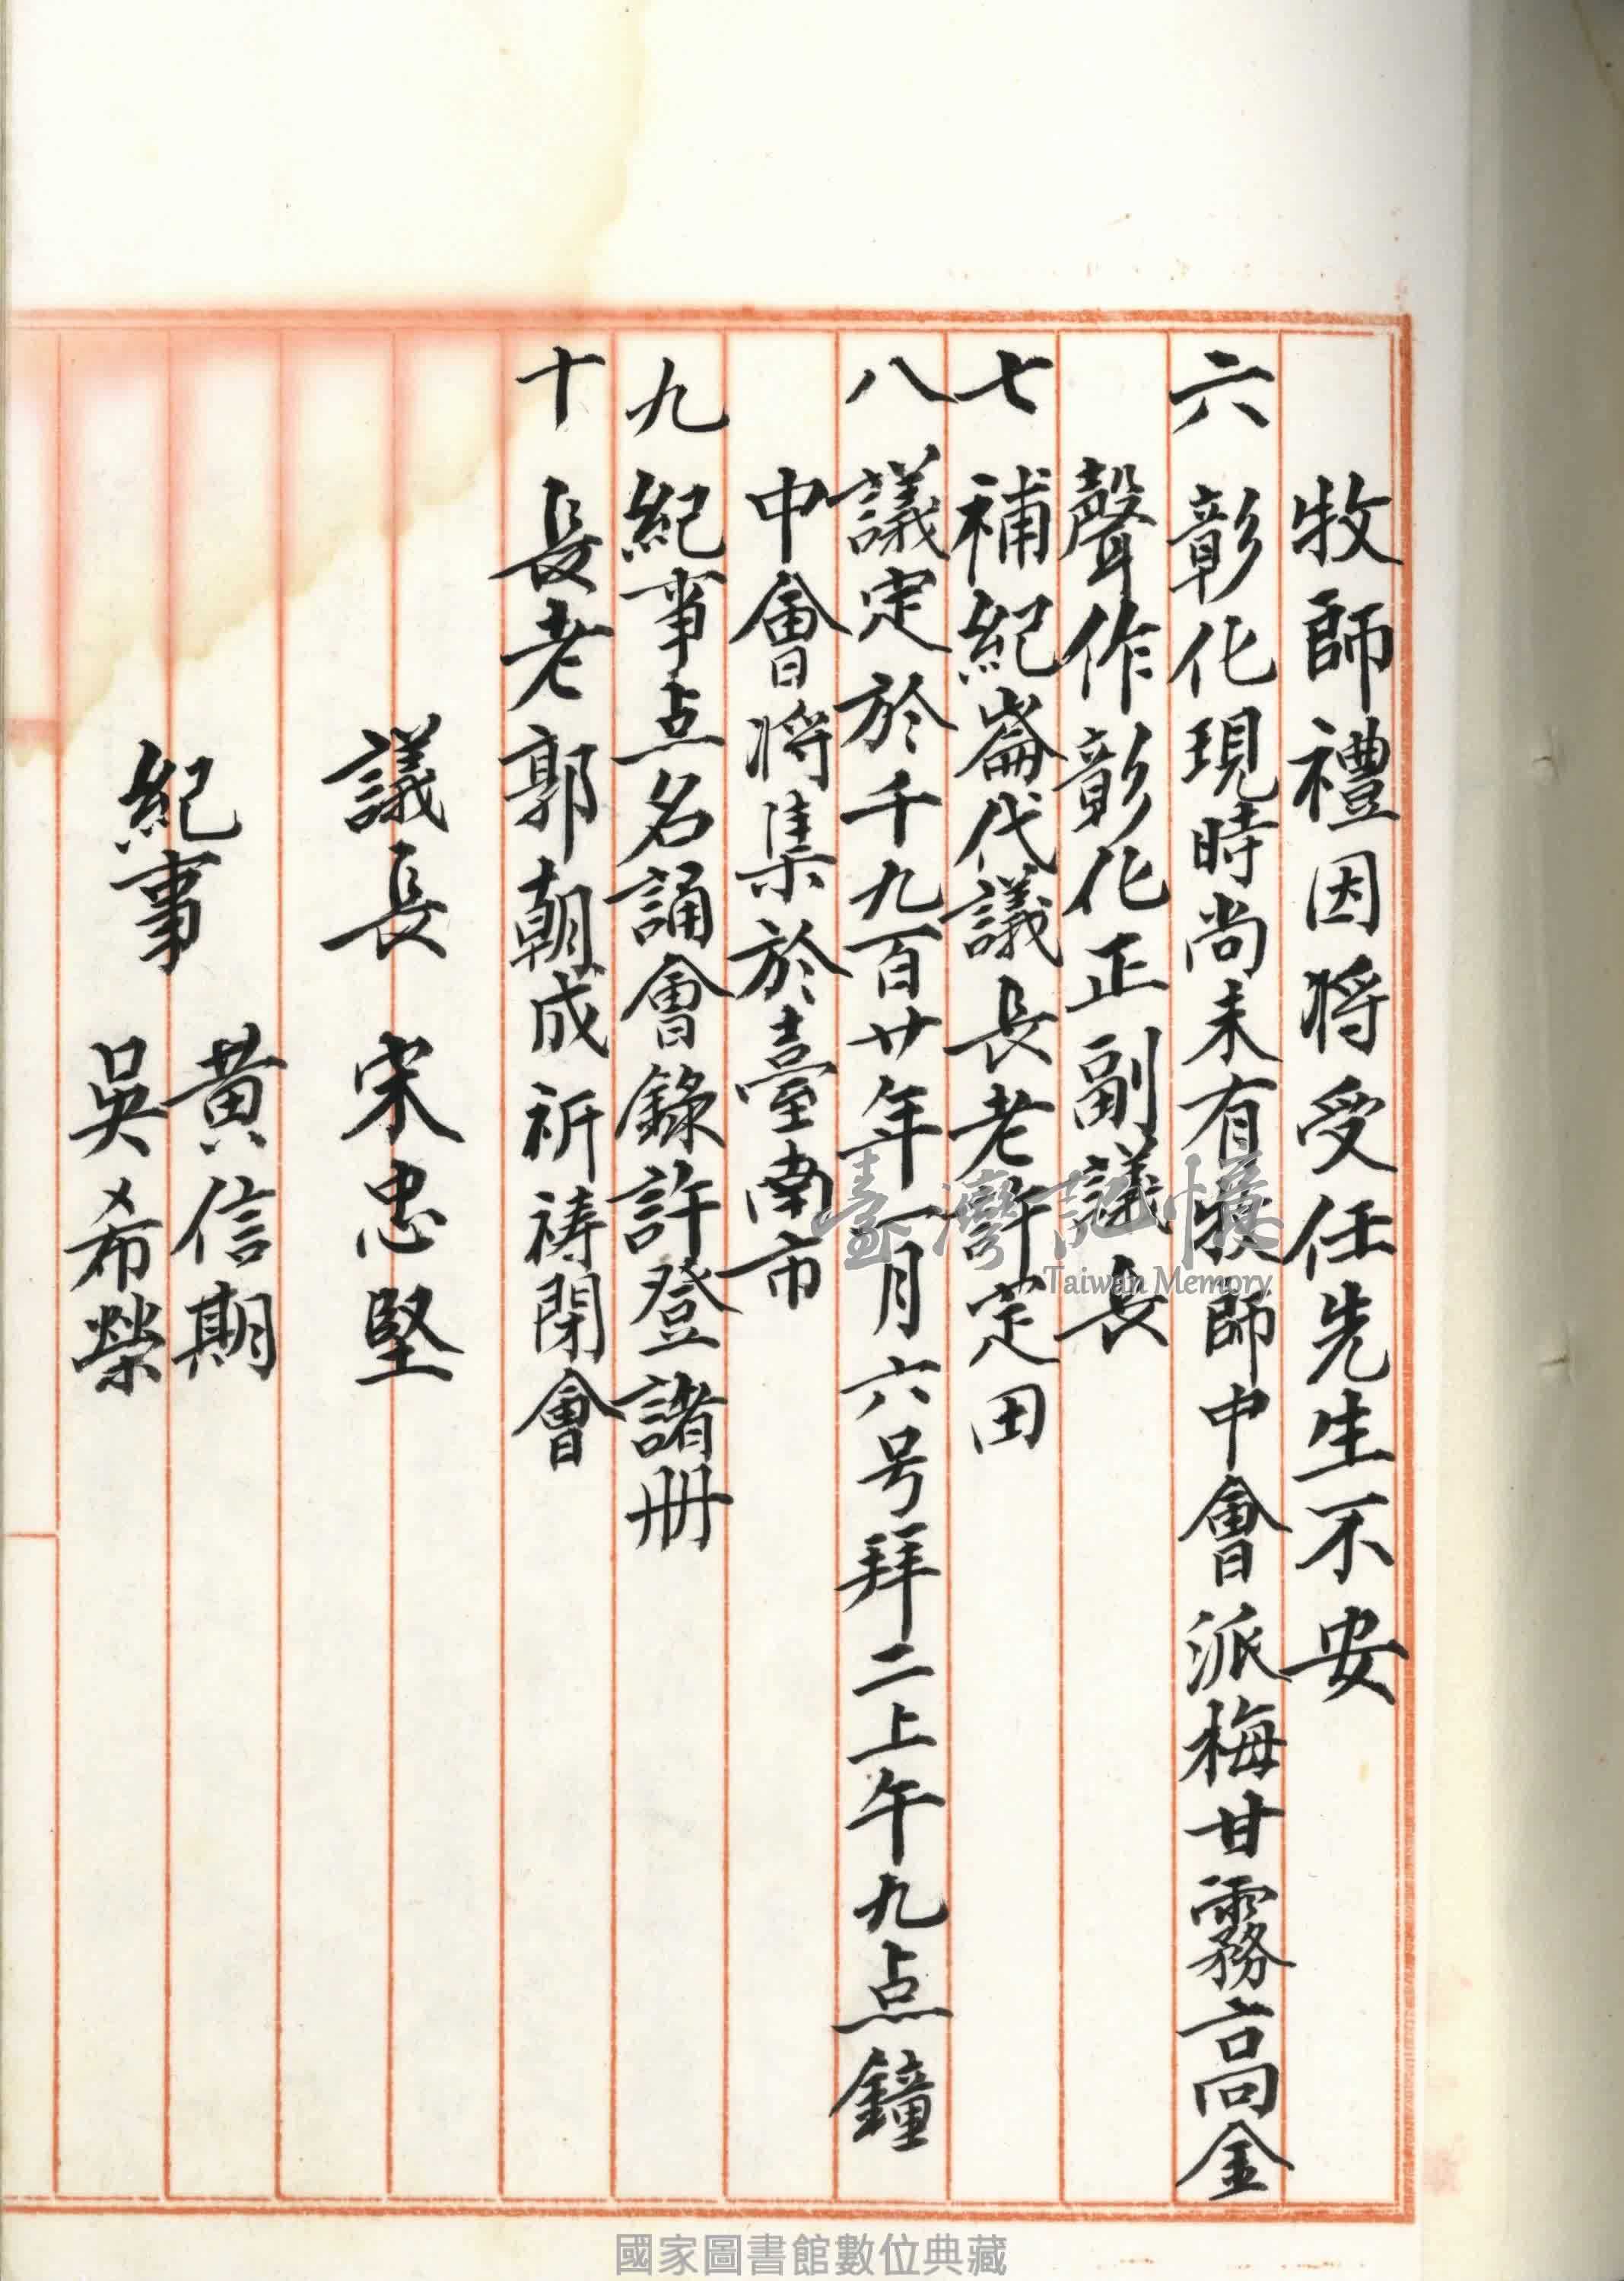 牧師禮因将受任先生不安
六 彰化現時尚未有牧師中會派梅甘霧高金
聲作彰化正副議長
七 補紀崙代議長老許定田
八 議定於千九百廿年一月六号拜二上午九点鐘
中會将集於臺南市
九 紀事点名誦會錄許登諸冊
十 長老郭朝成祈祷閉會
議長 宋忠堅
紀事 黄信期
吳希榮
臺灣記憶
Taiwan Memory
國家圖書館數位典藏